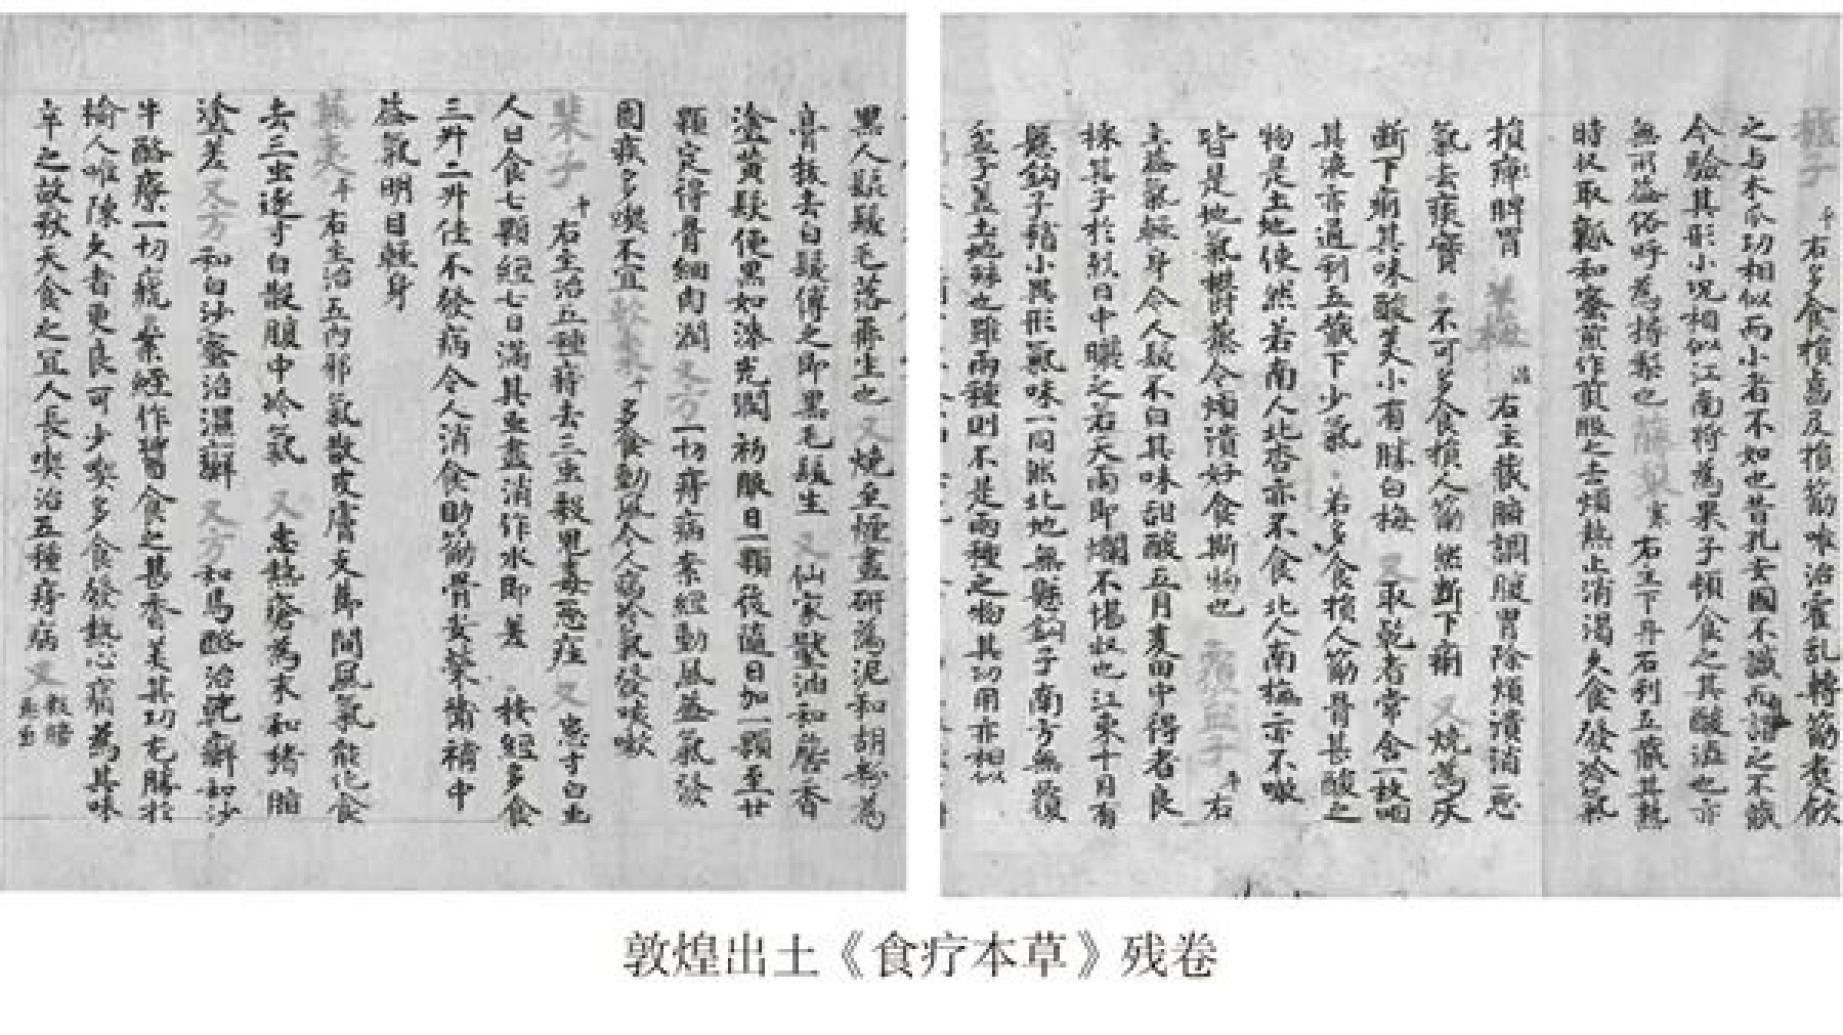 樝子 平 右多食損齒及損筋唯治霍乱轉筋煮飲
之与木瓜功相似而小者不如也昔孔安國不識而謂之不藏
今驗其形小況相似江南將為果子頓食之其酸澁也亦
無所益俗呼為搙梨也 藤梨 寒 右主下丹石利五藏其熟
時収取瓤和蜜煎作煎服之去煩熱止消渴久食發冷氣
損痺脾胃 羊梅 温 右主藏腑調腹胃除煩潰消惡
氣去痰實 不可多食損人筋然断下痢 又燒為灰
断下痢其味酸美小有勝白梅 又取乾者常含一枚咽
其液亦通利五藏下少氣 若多食損人筋骨甚酸之
物是土地使然若南人北杏亦不食北人南梅亦不噉
皆是地氣欝蒸令煩潰好食斯物也 覆盆子 平 右
主益氣輕身令人髮不白其味甜酸五月麦田中得者良
採其子於烈日中曬之若天雨即爛不堪収也江東十月有
懸鈎子稍小異形氣味一同然北地無懸鈎子南方無覆
盆子盖土地殊也雖兩種則不是兩種之物其功用亦相似
黑人髭髮毛落再生也 又燒至煙盡研為泥和胡粉為
膏拔去白髮傅之即黑毛髮生 又仙家壓油和詹香
塗黄髮便黑如漆光潤 初服日一顆後隨日加一顆至廿
顆定得骨細肉潤 又方一切痔病案經動風益氣發
固疾多喫不宜 軟棗 平 多食動風令人病冷氣發咳嗽
棐子 平 右主治五種痔去三虫殺鬼毒惡疰 又患寸白虫
人日食七顆經七日滿其虫盡消作水即差 按經多食
三升二升佳不發病令人消食助筋骨安榮衛補中
益氣明目輕身
蕪荑 平 右主治五内邪氣散皮膚支節間風氣能化食
去三虫逐寸白散腹中冷氣 又患熱瘡為末和猪脂
塗差 又方和白沙蜜治濕癬 又方和馬酪治乾癬和沙
牛酪療一切瘡 案經作醬食之甚香美其功尤勝於
榆人唯陳久者更良可少喫多食發熱心痛為其味
辛之故秋天食之宜人長喫治五種痔病 又殺腸
惡虫
敦煌出土《食疗本草》残卷